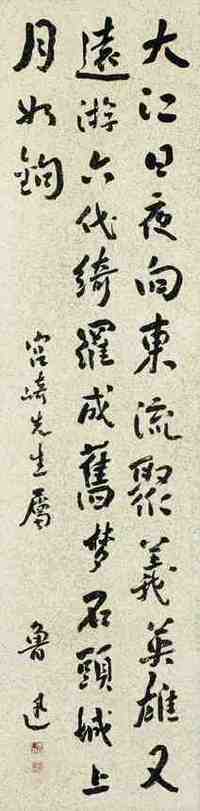 大江日夜向東流聚義英雄又
遠游六代綺羅成舊夢石頭城上
月如鉤
宮崎先生屬
魯迅